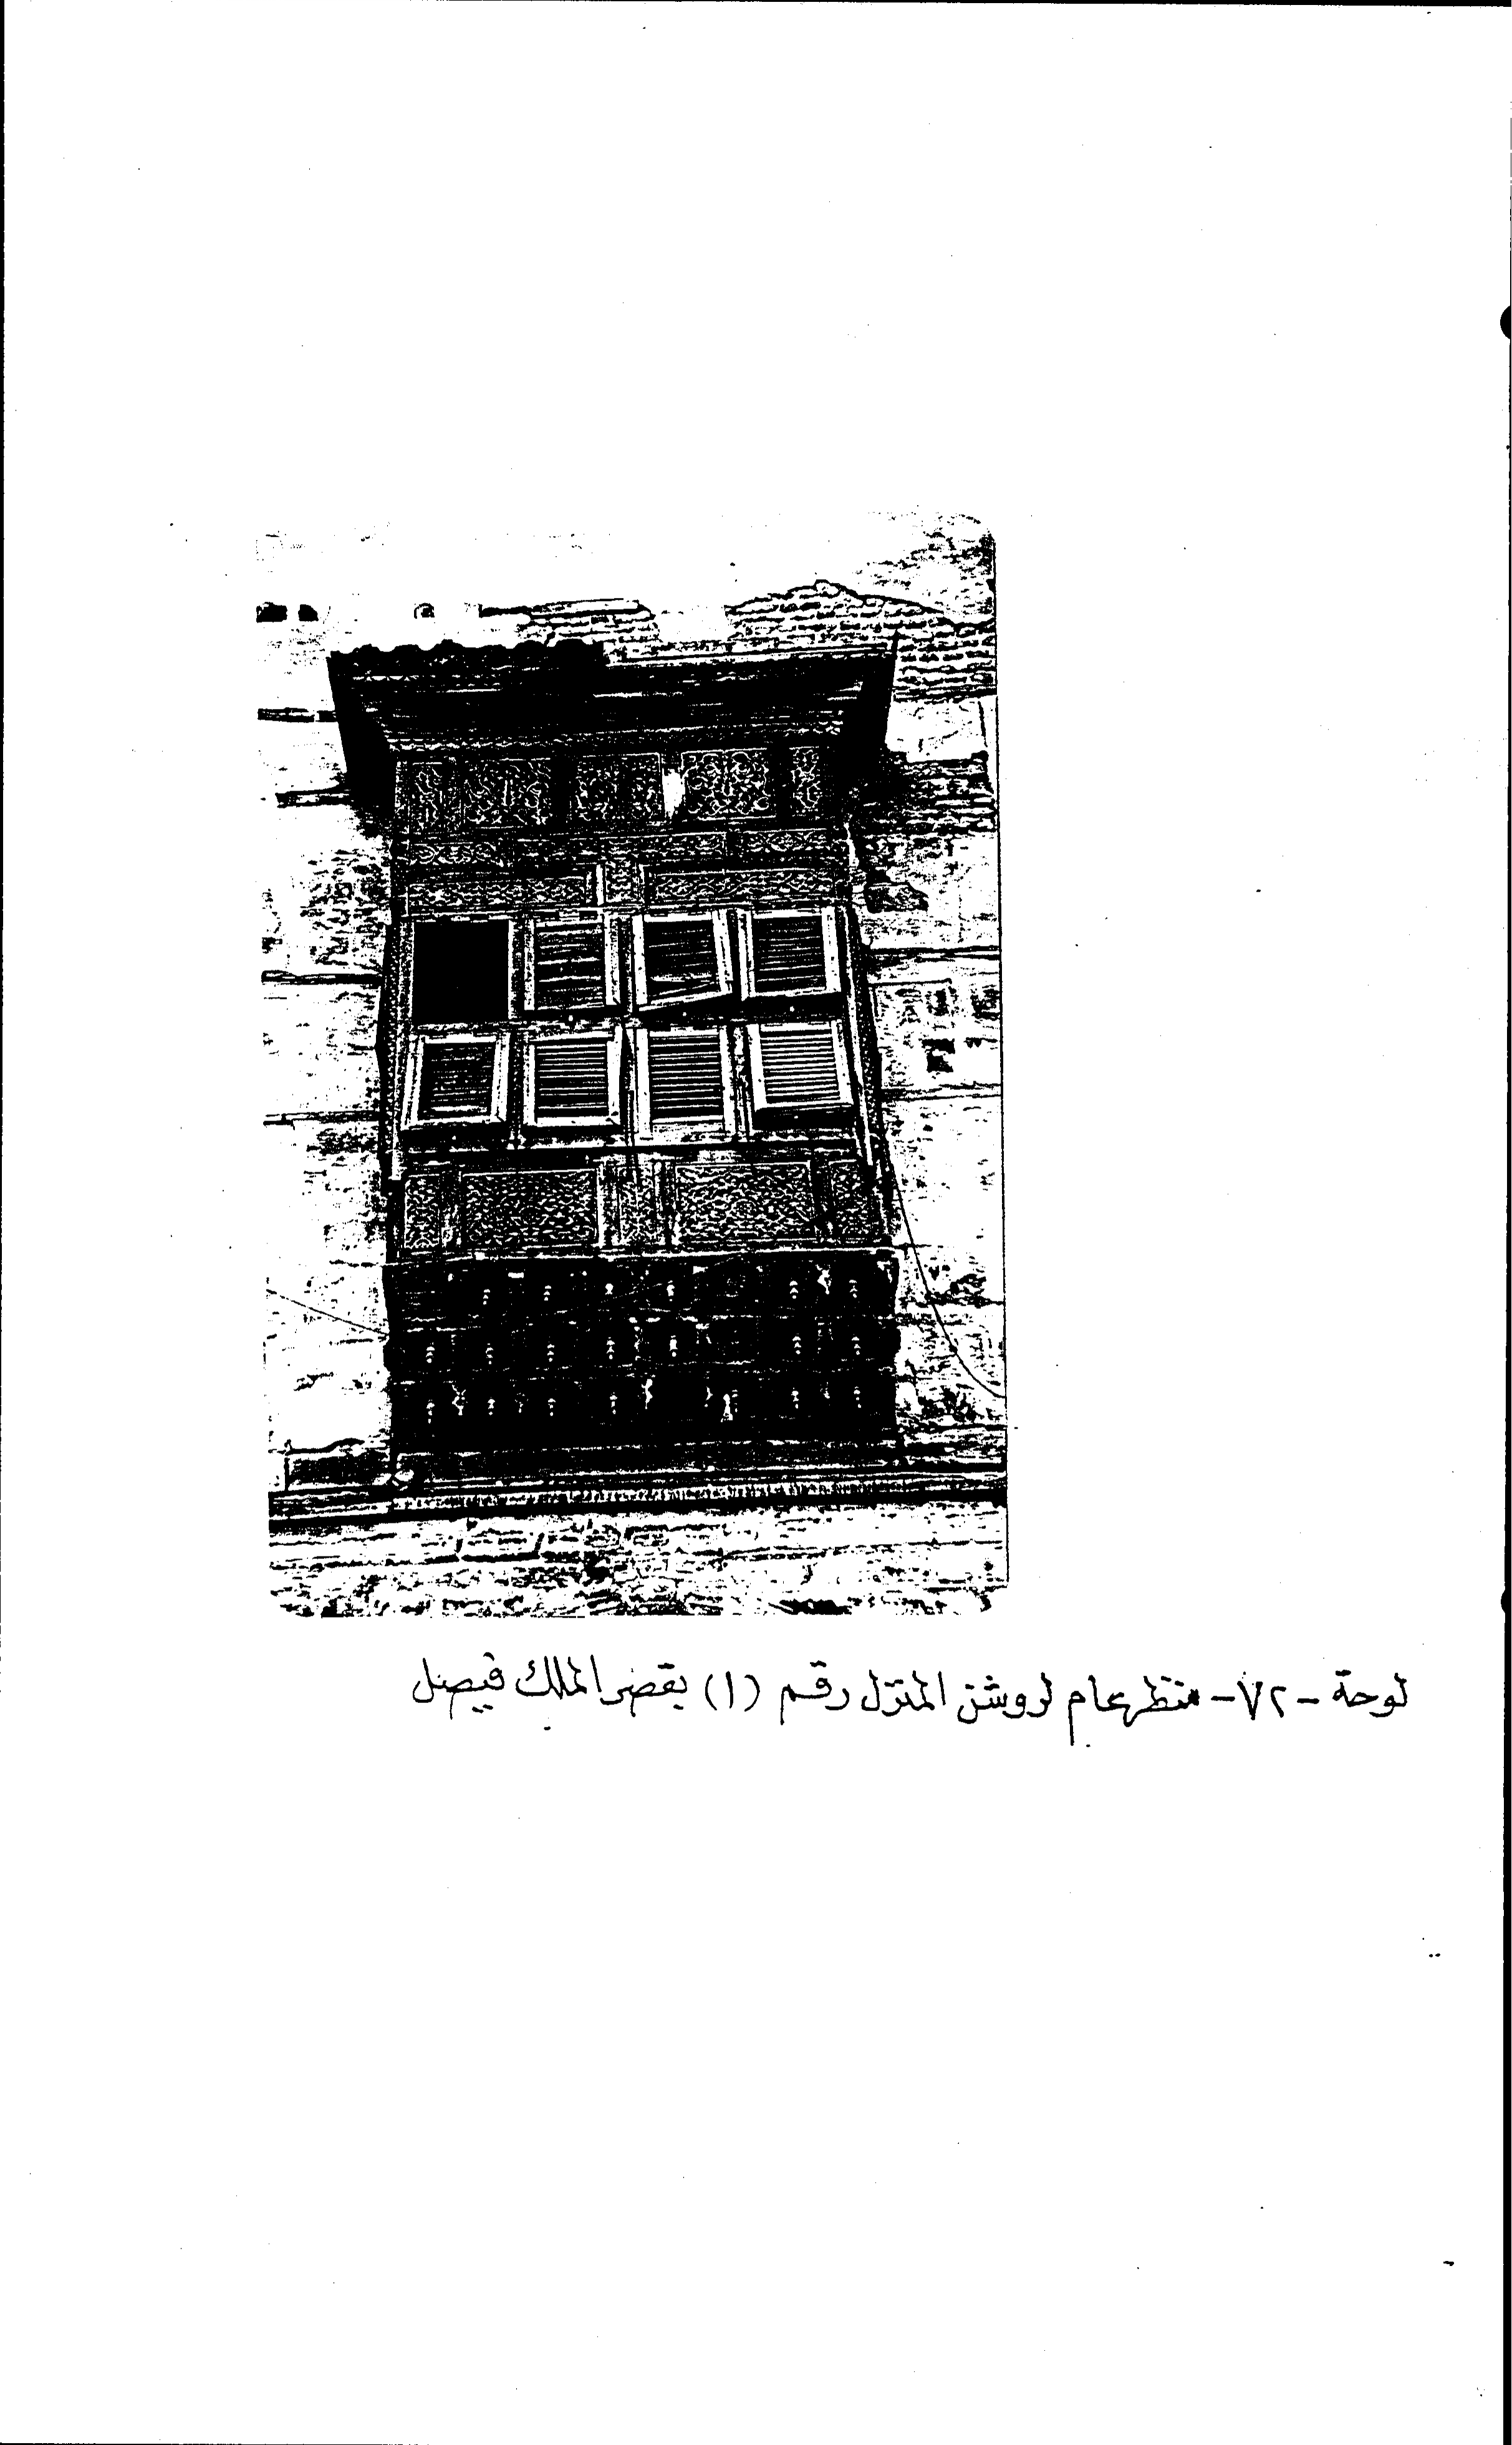 لوحة - ٧٢ - منظر عام لروشن المنزل رقم (١) بقصر الملك فيصل